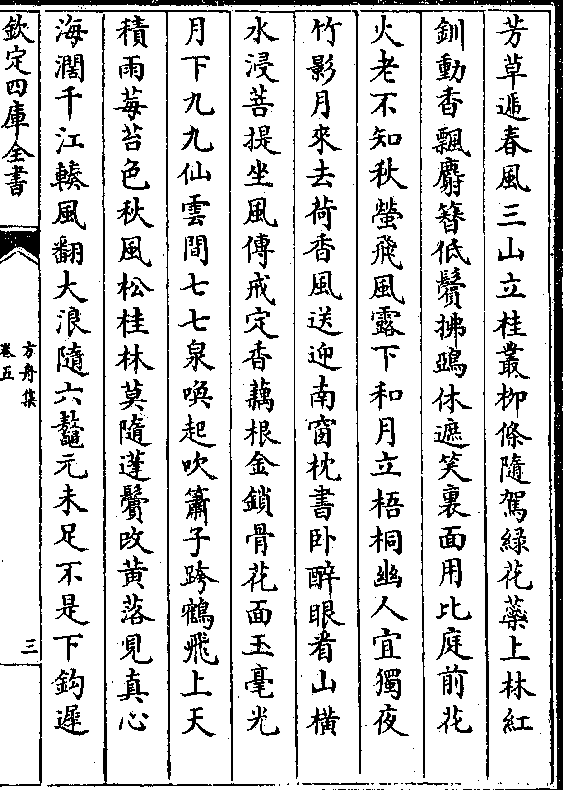 芳草遞春風三山立桂叢柳條隨駕緑花蘂上林紅
釧動香飄麝簪低鬢拂鵶休遮笑裏面用比庭前花
火老不知秋螢飛風露下和月立梧桐幽人宜獨夜
竹影月來去荷香風送迎南窗枕書卧醉眼看山橫
水浸菩提坐風傳戒定香藕根金鎖骨花面玉毫光
月下九九仙雲間七七泉喚起吹簫子跨鶴飛上天
積雨莓苔色秋風松桂林莫隨蓬鬢改黄落見真心
海濶千江輳風翻大浪隨六鼇元未足不是下鈎遲
欽定四庫全書
方舟集
卷五
三